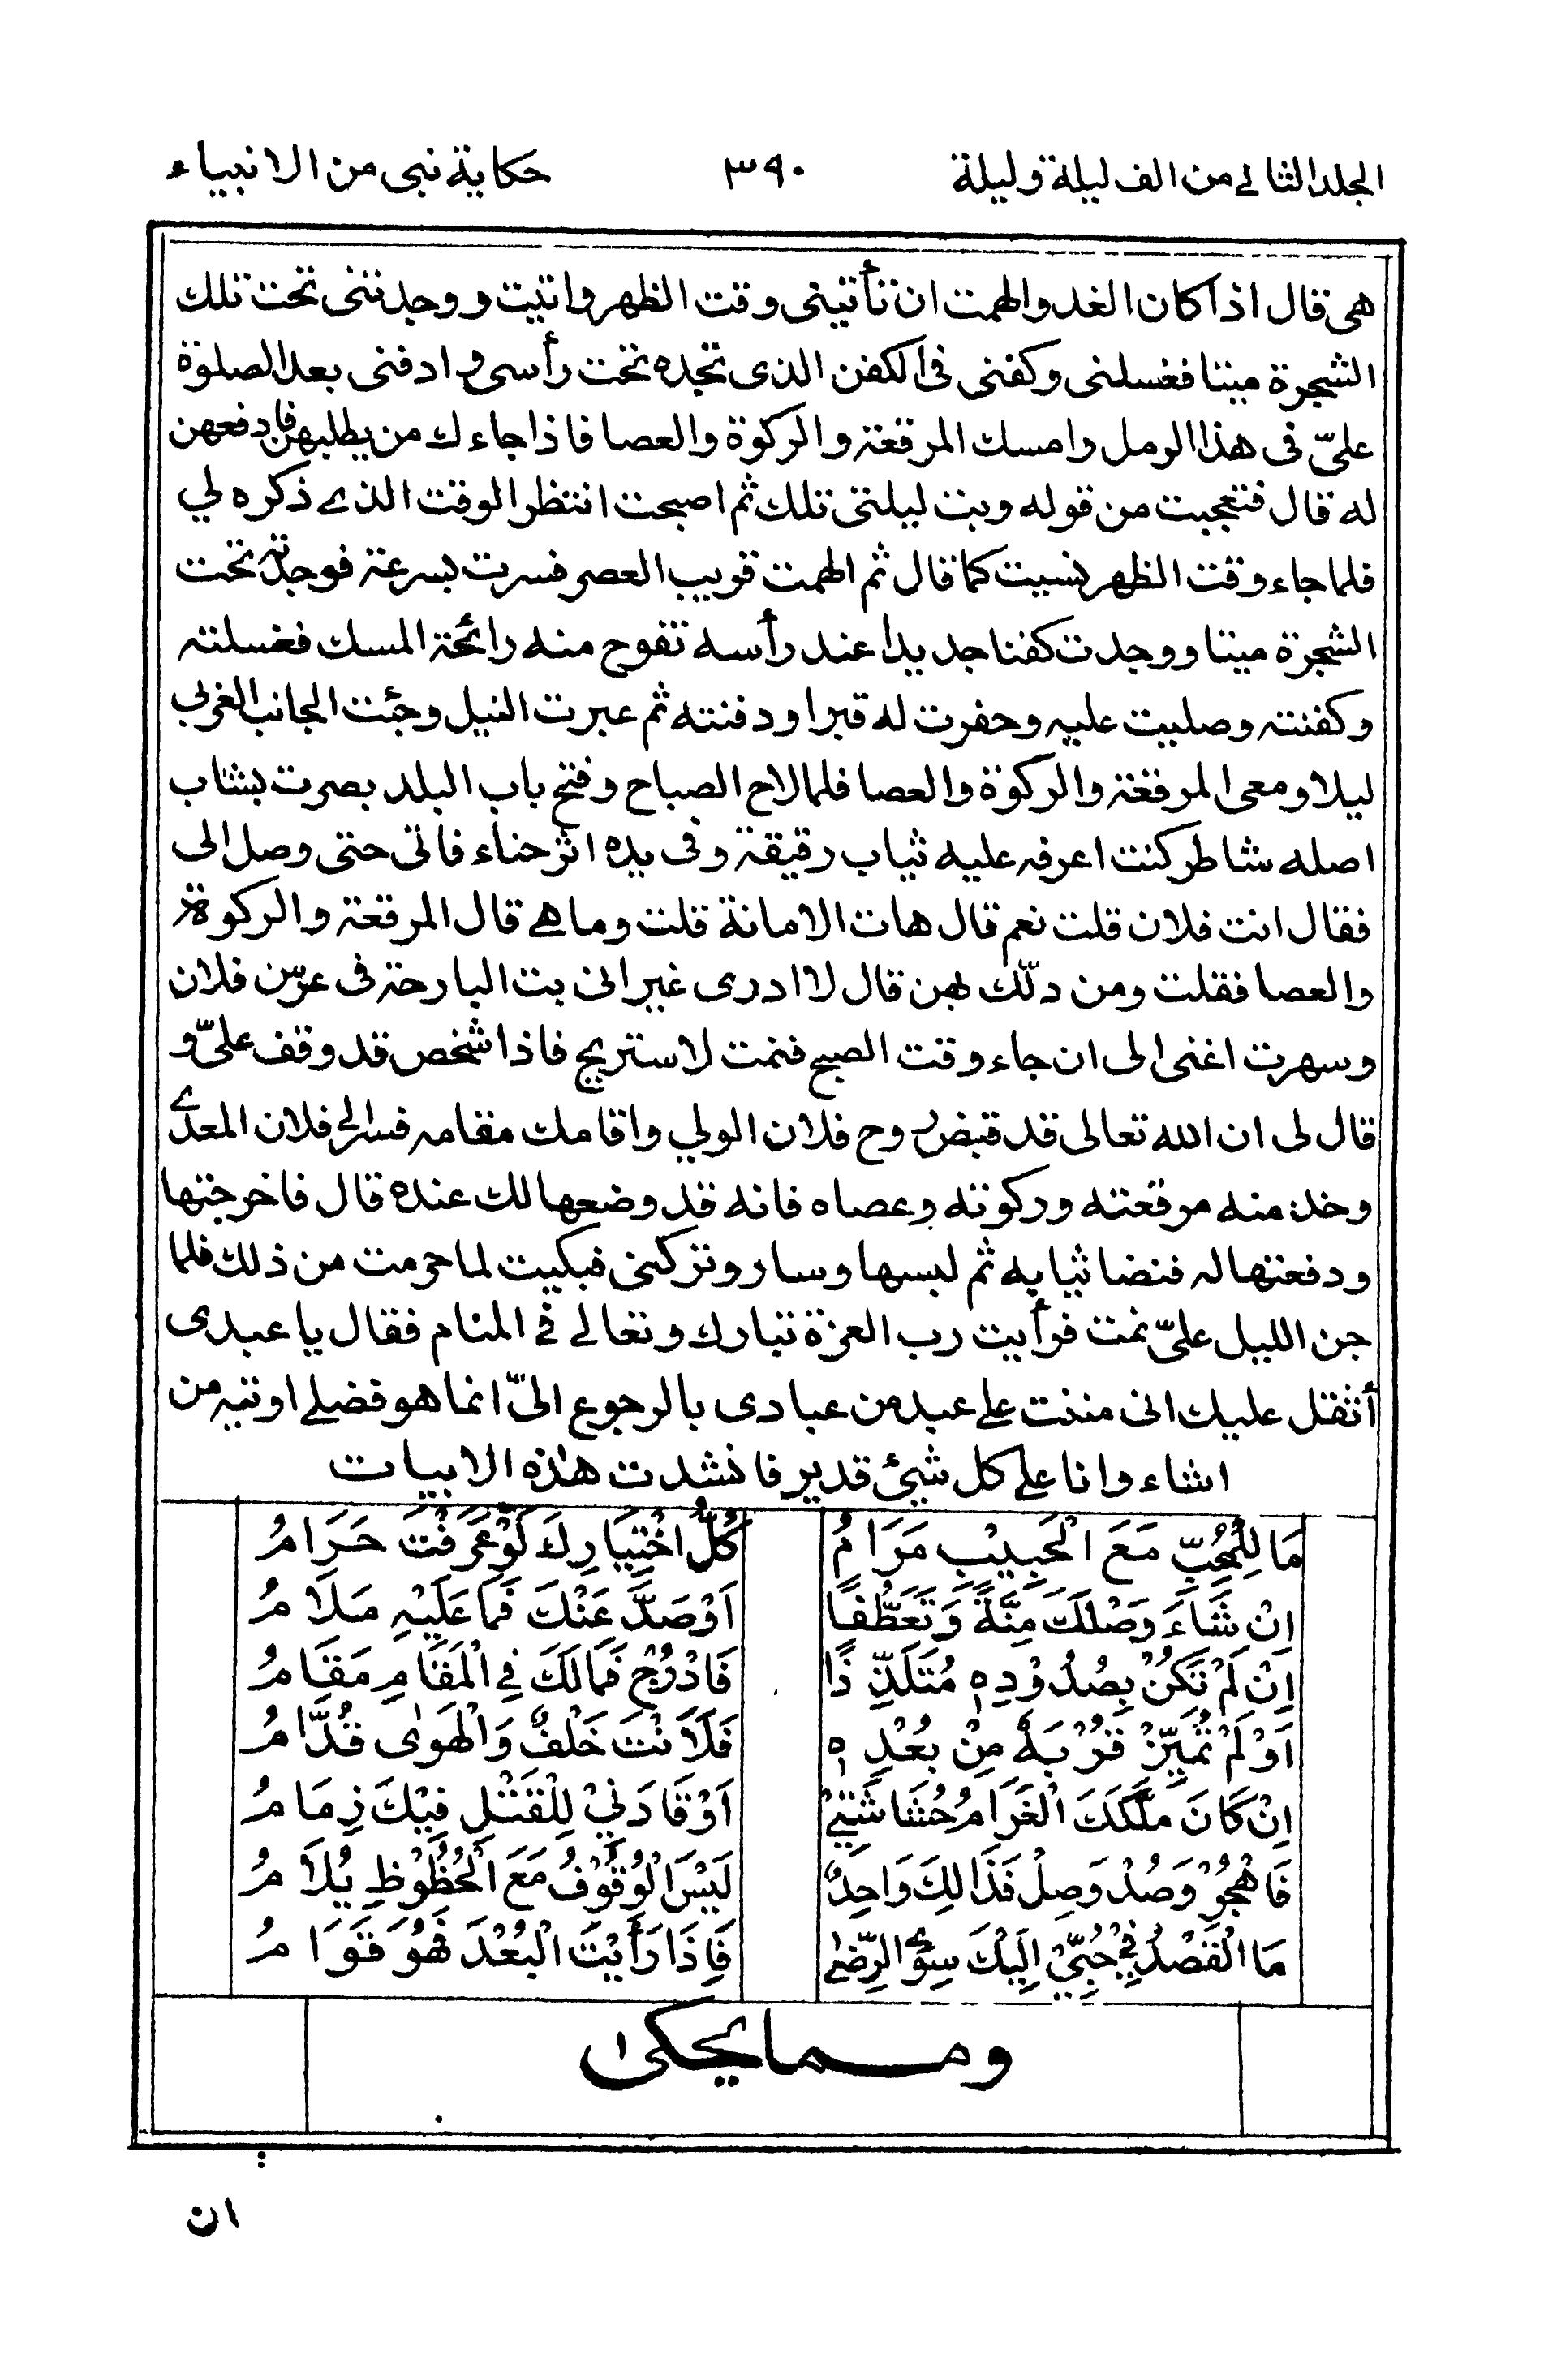 الجلد الثاني من الف ليلة وليلة ٣٩٠ حكاية نبى من الانبياء
هى قال اذا كان الغد والهمت ان تأتينى وقت الظهر واتيت ووجدتنى تحت تلك
الشجرة ميتا فغسلنى وكفنى فى الكفن الذى تجده تحت رأسى وادفنى بعد الصلوة
علىّ فى هذا الرمل وامسك المرقعة والركوة والعصا فاذا جاءك من يطلبهن فادفعهن
له قال فتعجبت من قوله وبت ليلتى تلك ثم اصبحت انتظر الوقت الذے ذكره لي
فلما جاء وقت الظهر نسيت كما قال ثم الهمت قريب العصر فسرت بسرعة فوجدته تحت
الشجرة ميتا ووجدت كفنا جديدا عند رأسه تفوح منه رائحة المسك فغسلته
وكفنته وصليت عليه وحفرت له قبرا ودفنته ثم عبرت النيل وجئت الجانب الغربي
ليلا ومعى المرقعة والركوة والعصا فلما لاح الصباح وفتح باب البلد بصرت بشاب
اصله شاطر كنت اعرفه عليه ثياب رقيقة وفى يده اثر حناء فاتى حتى وصل الى
فقال انت فلان قلت نعم قال هات الامانة قلت وما هے قال المرقعة والركوة
والعصا فقلت ومن دلّك بهن قال لا ادرى غير انى بت البارحة فى عرس فلان
وسهرت اغنى الى ان جاء وقت الصبح فنمت لاستريح فاذا شخص قد وقف علىّ و
قال لى ان الله تعالى قد قبض روح فلان الولي واقامك مقامه فسر الى فلان المعدے
وخذ منه مرقعته وركوته وعصاه فانه قد وضعها لك عنده قال فاخرجتها
ودفعتها له فنضا ثيابه ثم لبسها وسار وتركنى فبكيت لما حرمت من ذلك فلما
جن الليل علىّ نمت فرأيت رب العزة تبارك وتعالے فى المنام فقال يا عبدى
أثقل عليك انى مننت علے عبد من عبادى بالرجوع الىّ انما هو فضلے اوتيه من
اشاء وانا علے كل شيئ قدير فانشدت هذه الابيات
مَا لِلْمُحِبِّ مَعَ الْحَبِيْبِ مَرَامُ كُلُّ اخْتِيَارِكَ لَوْ عَرَفْتَ حَرَامُ
اِنْ شَاءَ وَصْلَكَ مِنَّةً وَتَعَطُّفًا اَوْ صَدَّ عَنْكَ فَمَا عَلَيْهِ مَلَامُ
اِنْ لَمْ تَكُنْ بِصُدُوْدِهِ مُتَلَذِّذًا فَادْرُجْ فَمَا لَكَ فِي الْمَقَامِ مَقَامُ
اَوْ لَمْ تُمَيِّزْ قُرْبَهُ مِنْ بُعْدِهِ فَلَاَنْتَ خَلْفٌ وَالْهَوٰى قُدَّامُ
اِنْ كَانَ مَلَّكَكَ الْغَرَامُ حُشَاشَتِيْ اَوْ قَادَنِيْ لِلْقَتْلِ فِيْكَ زِمَامُ
فَاهْجُرْ وَصُدْ وَصِلْ فَذَالِكَ وَاحِدٌ لَيْسَ الْوُقُوْفُ مَعَ الْحُظُوْظِ يُلَامُ
مَا الْقَصْدُ فِيْ حُبِّيْ اِلَيْكَ سِوَى الرِّضٰے فَاِذَا رَأَيْتَ الْبُعْدَ فَهُوَ قَوَامُ
ومما يحكى
ان